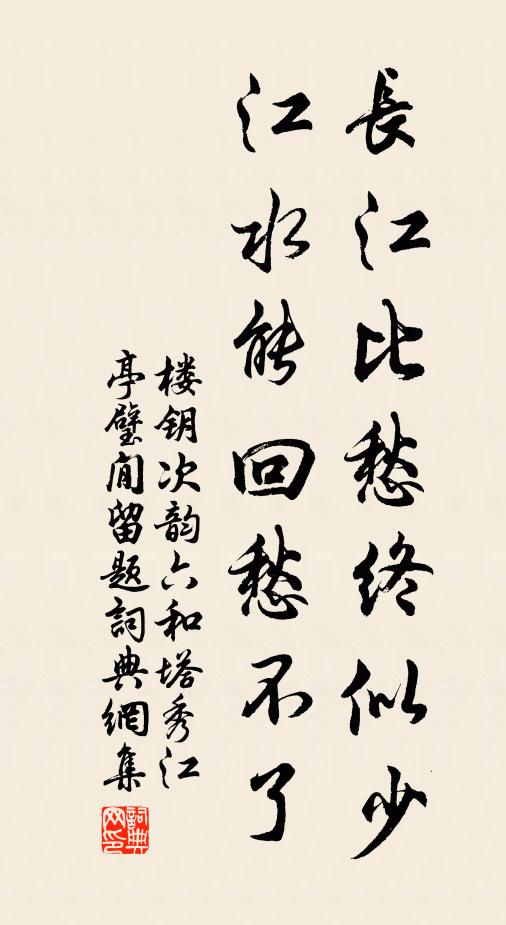 長江比愁終似少
江水能回愁不了
楼钥次韵六和塔秀江
亭壁间留题詞典網集
詞典网印